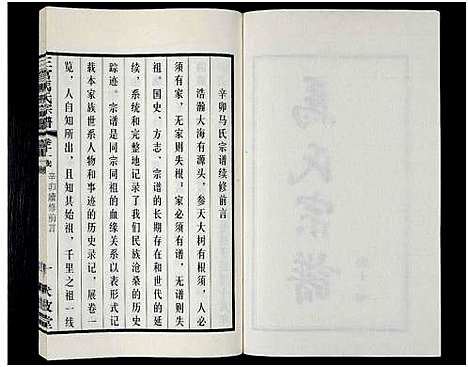 辛卯马氏宗谱续修前言
浩瀚大海有源头，参天大树有根须，人必
须有家，无家则失根。家必须有谱，无谱则失
祖。国史、方志、宗谱的长期存在和世代的延
续，系统和完整地记录了我们民族沧桑的历史
踪迹。宗谱是同宗同祖的血缘关系以表形式记
载本家族世系人物和事迹的历史录记，展卷一
览，人自知所出，且知其始祖，千里之祖一线
三官馬氏宗譜
卷十一
辛卯續修前言
一
馬氏宗譜